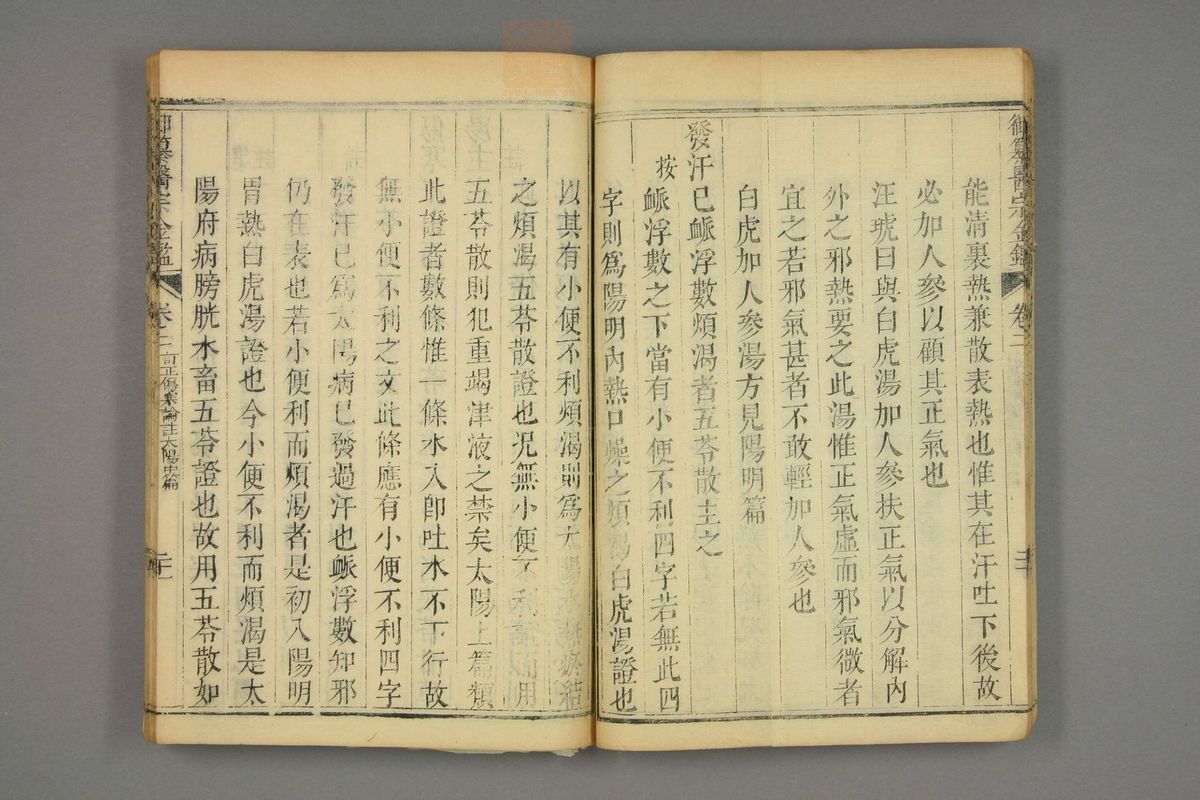 御纂醫宗金鑑 卷二
能清裏熱兼散表熱也惟其在汗吐下後故
必加人參以顧其正氣也
汪琥曰與白虎湯加人參扶正氣以分解內
外之邪熱要之此湯惟正氣虛而邪氣微者
宜之若邪氣甚者不敢輕加人參也
白虎加人參湯方見陽明篇
發汗已脈浮數煩渴者五苓散主之
按脈浮數之下當有小便不利四字若無此四
字則爲陽明內熱口燥之煩渴白虎湯證也
以其有小便不利煩渴則爲太陽水熱瘀結
之煩渴五苓散證也况無小便不利證而用
五苓散則犯重竭津液之禁矣太陽上篇類
此證者數條惟一條水入卽吐水不下行故
無小便不利之文此條應有小便不利四字
發汗已爲太陽病已發過汗也脈浮數知邪
仍在表也若小便利而煩渴者是初入陽明
胃熱白虎湯證也今小便不利而煩渴是太
陽府病膀胱水畜五苓證也故用五苓散如
御纂醫宗金鑑 卷二 訂正傷寒論註太陽中篇